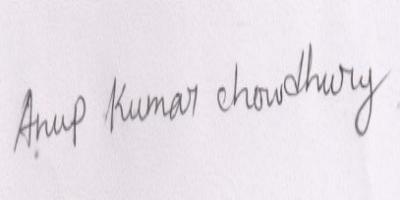 Anup Kumar chowdhury